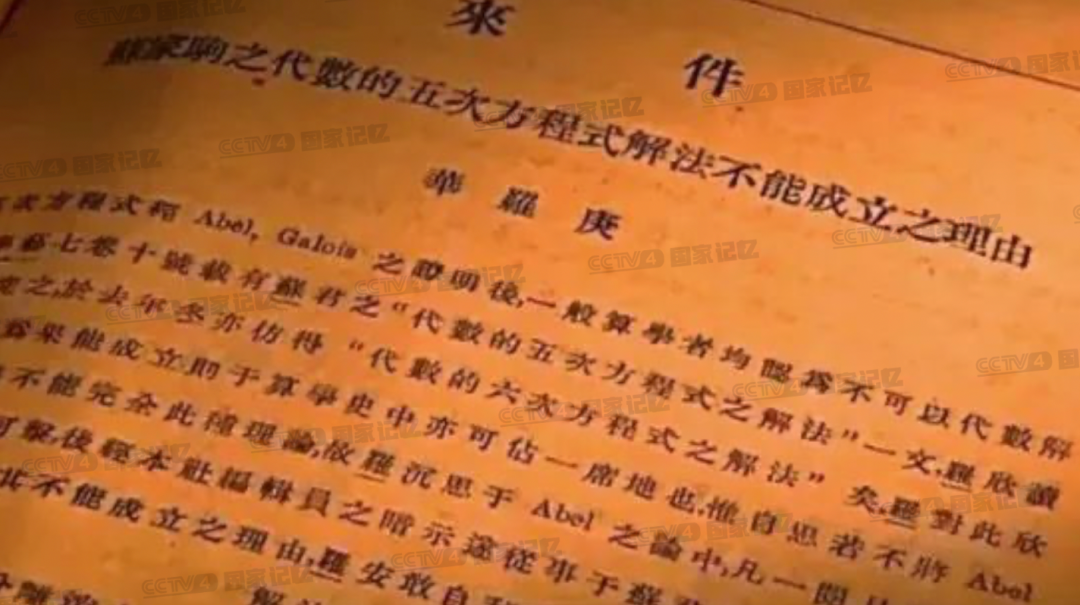 來件
蘇家駒之代數的五次方程式解法不能成立之理由
華羅庚
次方程式經 Abel, Galois 之證明後,一般算學者均認爲不可以代數解
七卷十號載有蘇君之“代數的五次方程式之解法”一文,羅欣讀
之,於去年冬亦仿得“代數的六次方程式之解法”矣,羅對此欣
果能成立則于算學史中亦可佔一席地也,惟自思若不將 Abel
不能完全此種理論,故羅沉思于 Abel 之論中,凡一閱
後經本社編輯員之暗示遂從事于蘇
不能成立之理由,羅安敢自
CCTV4 国家记忆